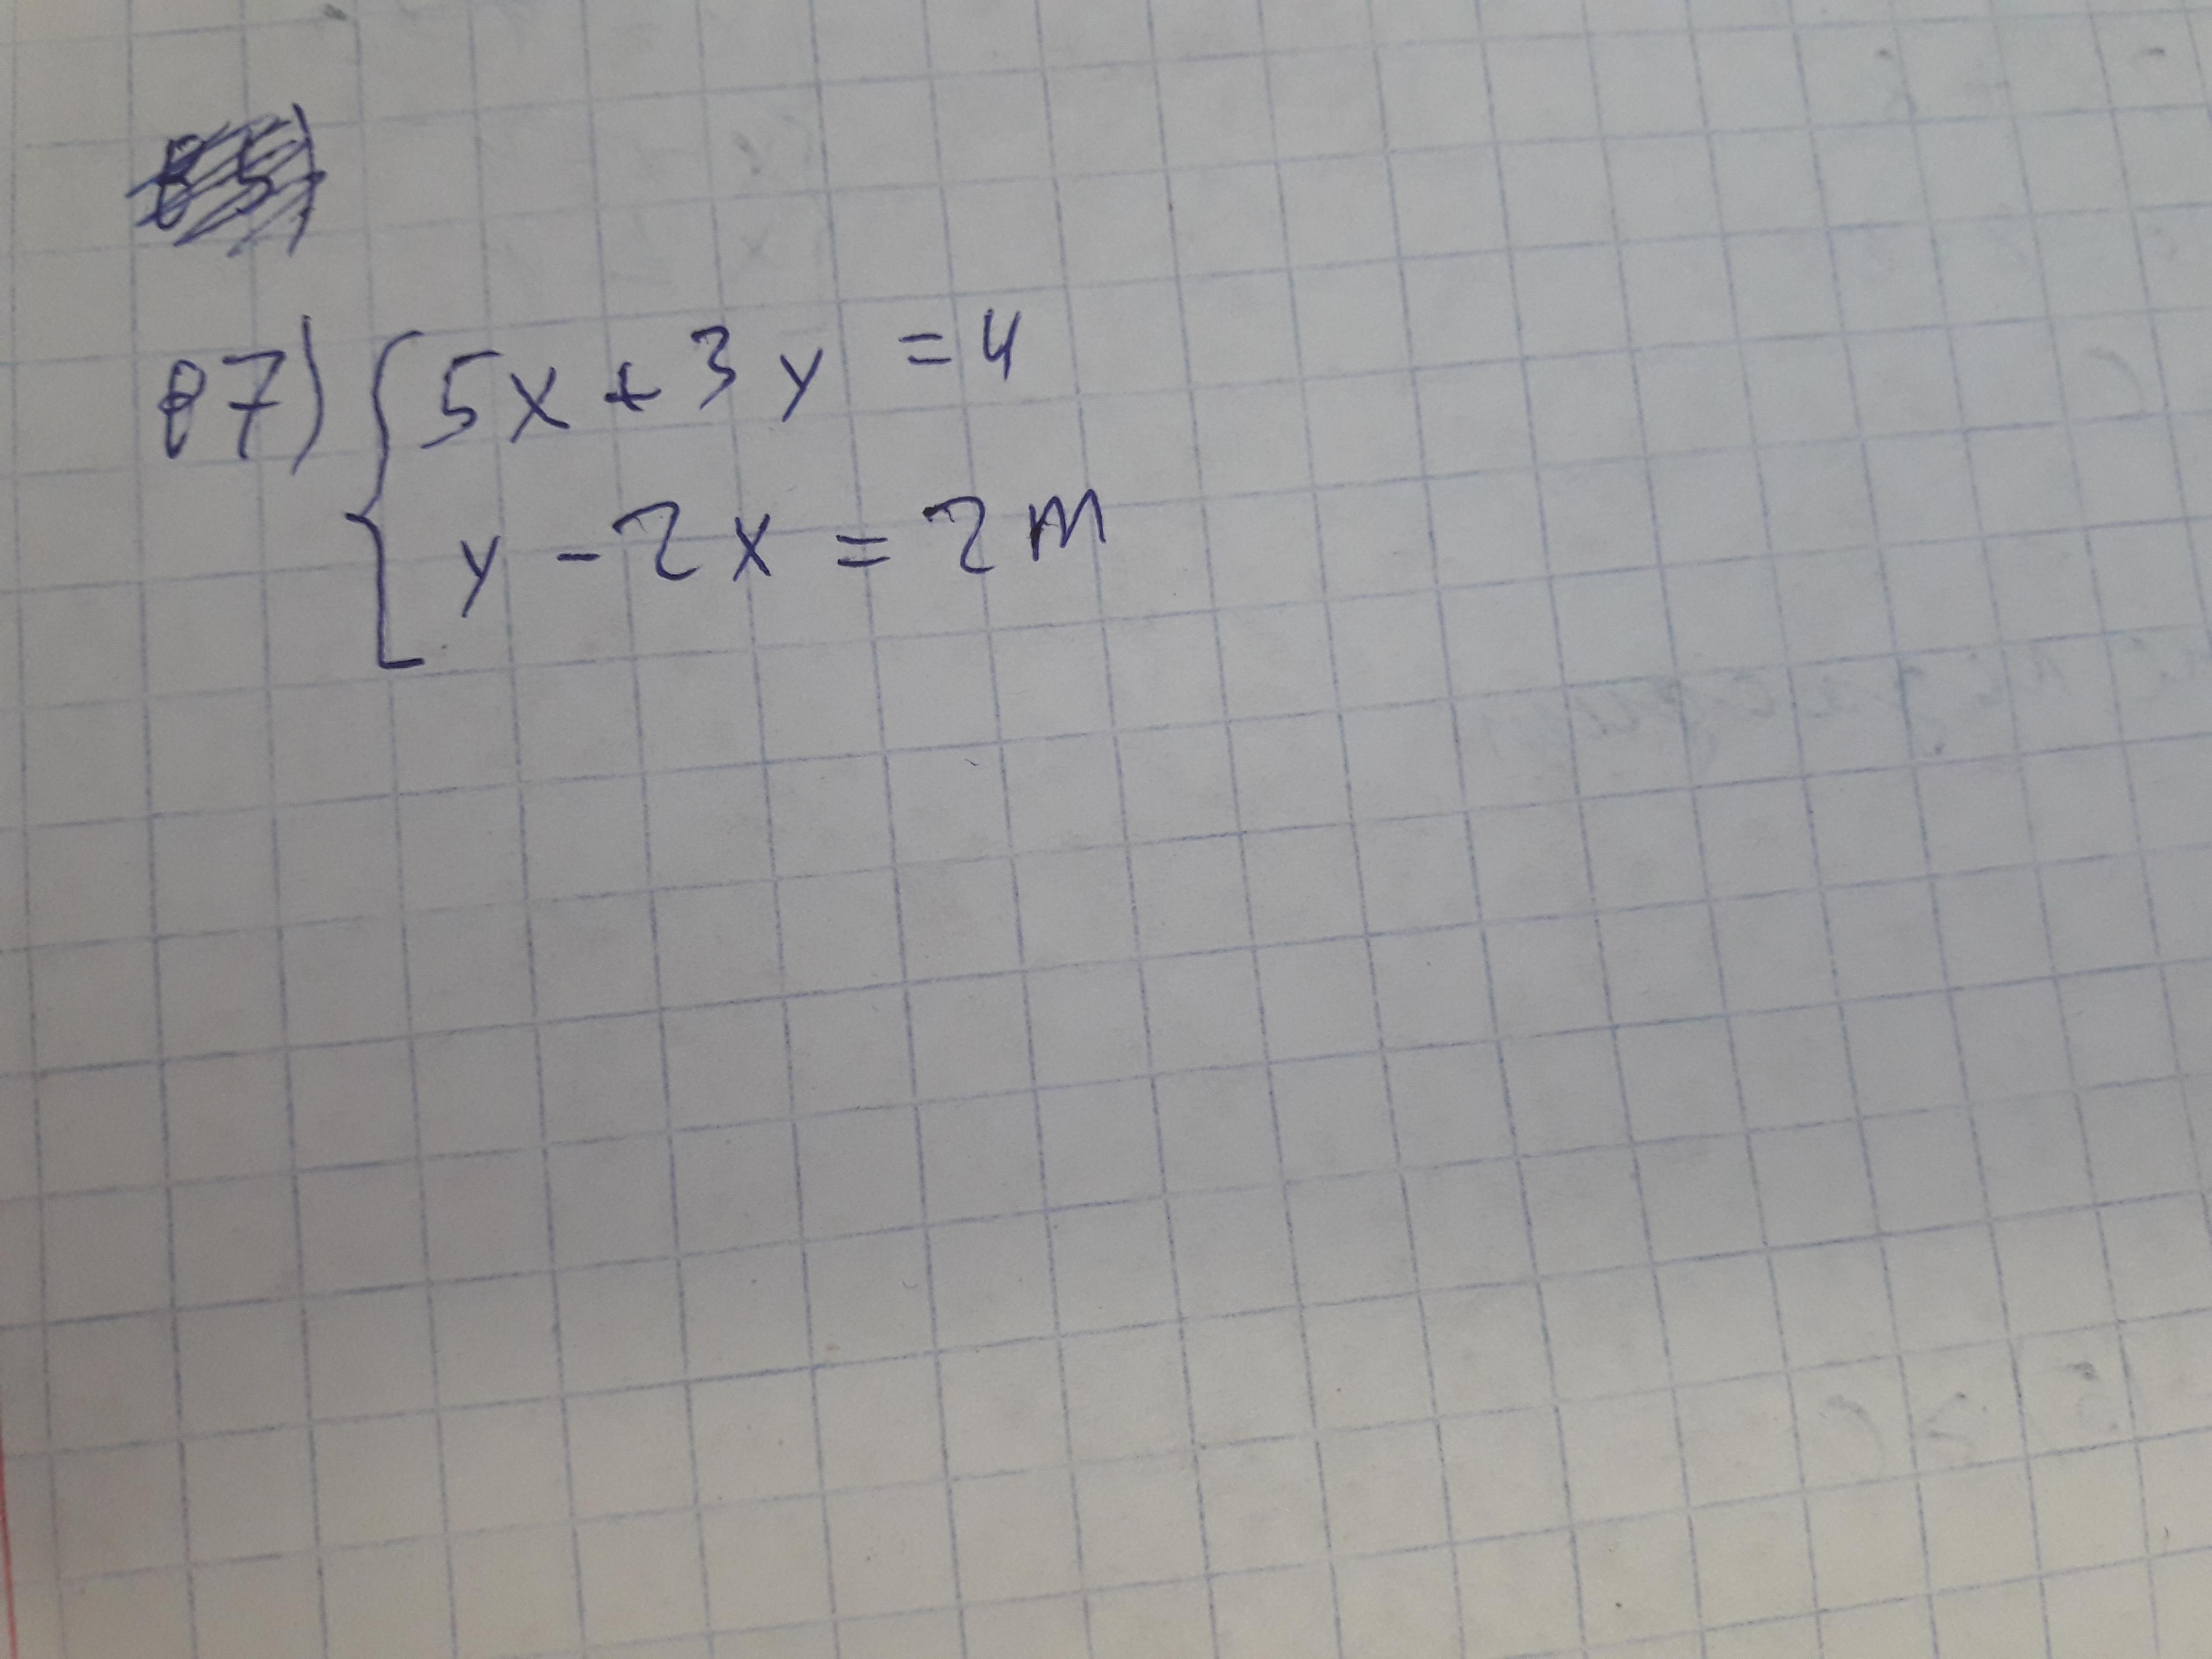 87) { 5x + 3y = 4
y - 2x = 2m